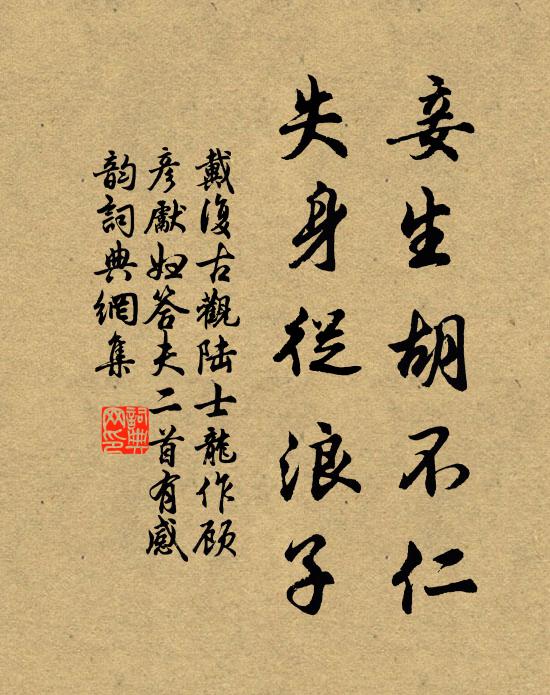 妾生胡不仁
失身從浪子
戴復古觀陆士龍作顾
彦獻婦答夫二首有感
韵詞典網集
詞典
网印